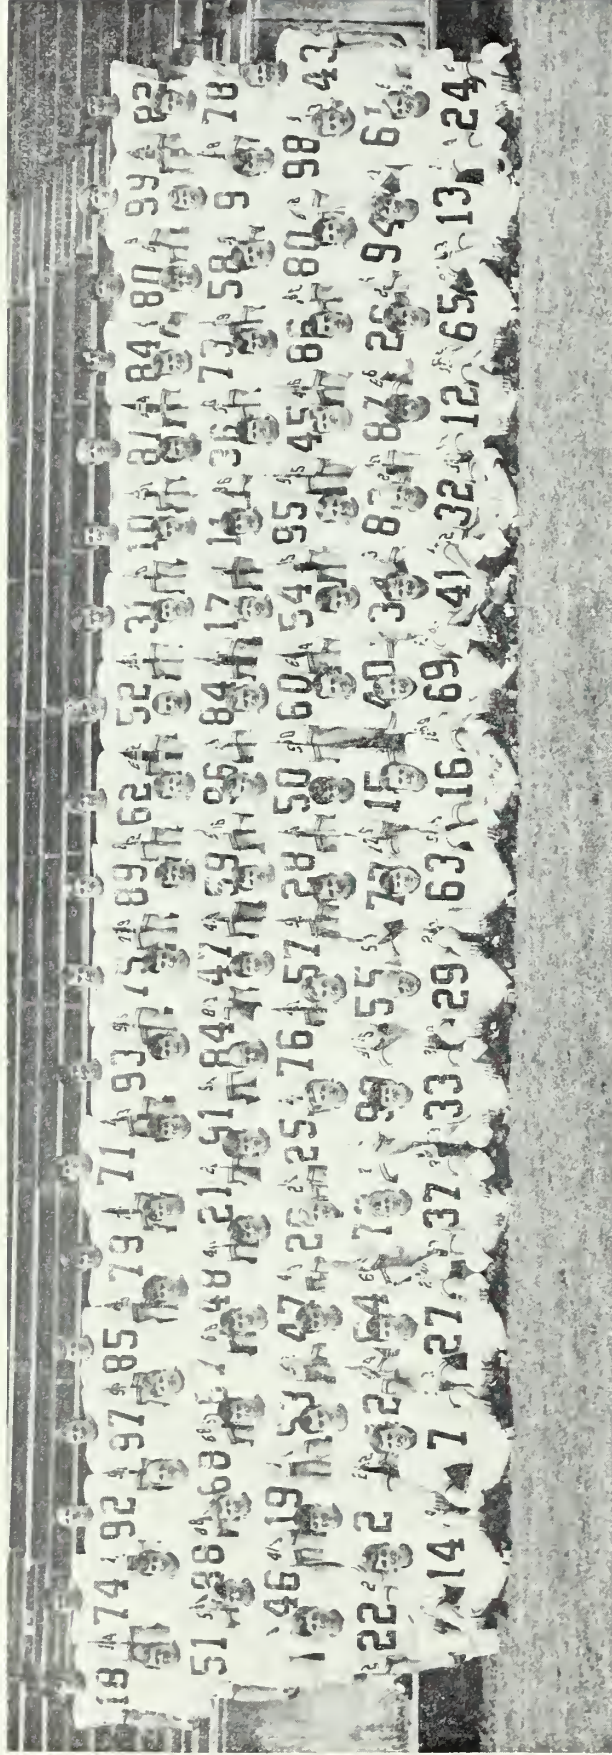 18 74 92 97 85 79 71 93 75 89 62 52 31 10 81 84 80 99 82
51 98 68 48 21 91 84 47 59 86 84 17 11 36 73 58 9 78
46 19 53 47 26 25 76 57 28 50 60 54 95 45 86 80 98 43
22 2 64 55 15 40 34 83 87 26 94 6
14 7 27 37 33 29 63 16 69 41 32 12 65 13 24